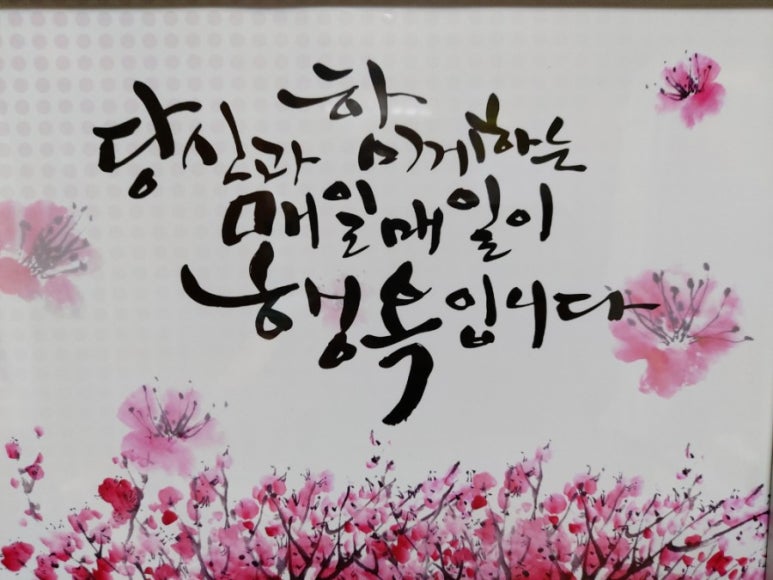 당신과 함께하는
매일매일이
행복입니다